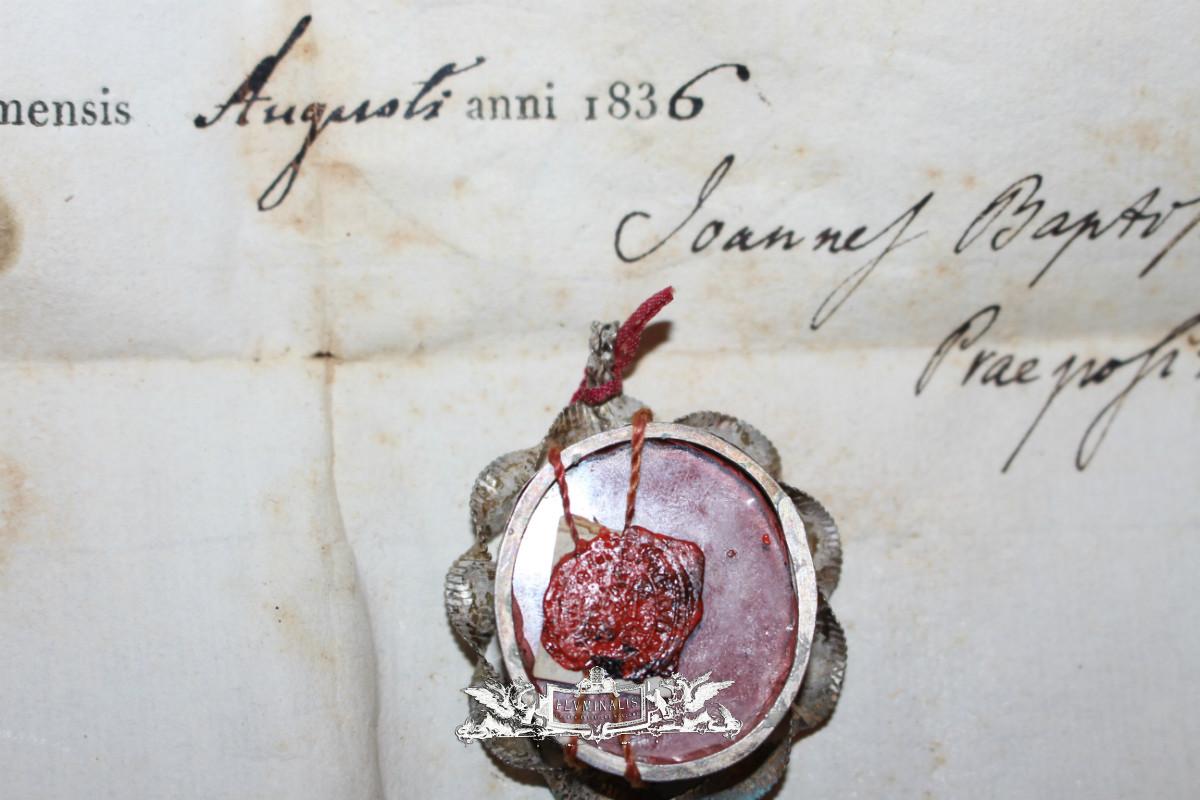 mensis Augusti anni 1836
Joannes Baptis
Praeposi
ALVMINALIS